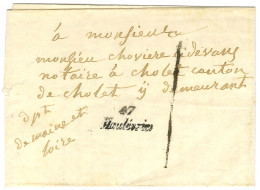 à monsieur
monsieu choviere cidevans
notaire à cholet canton
de cholet ÿ demeurant
dpt
de maine et
loire
47
Maulévrier